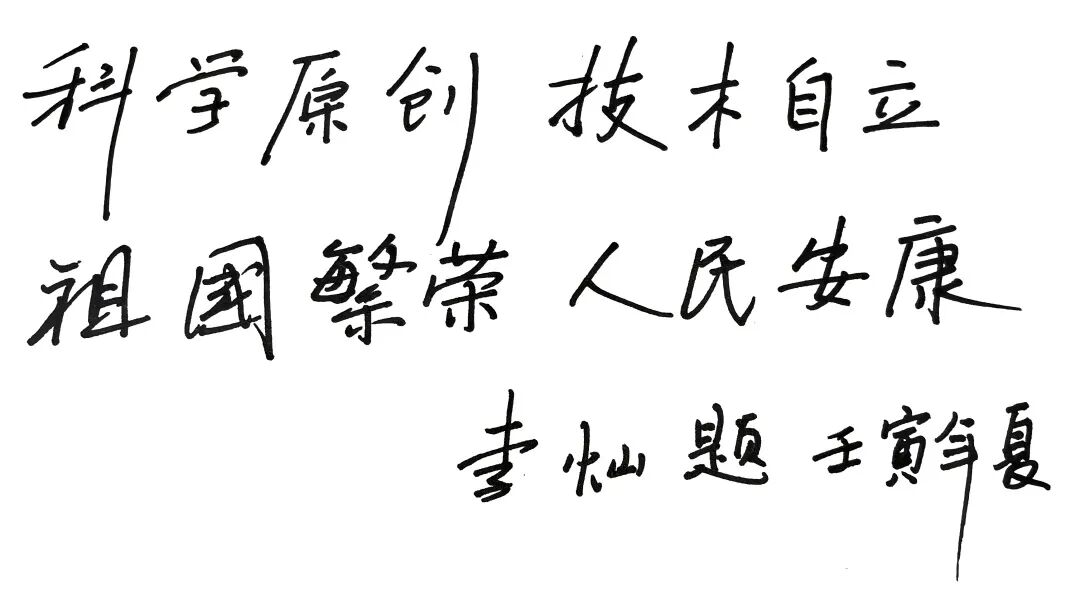 科学原创 技术自立
祖國繁荣 人民安康
李灿题 壬寅年夏